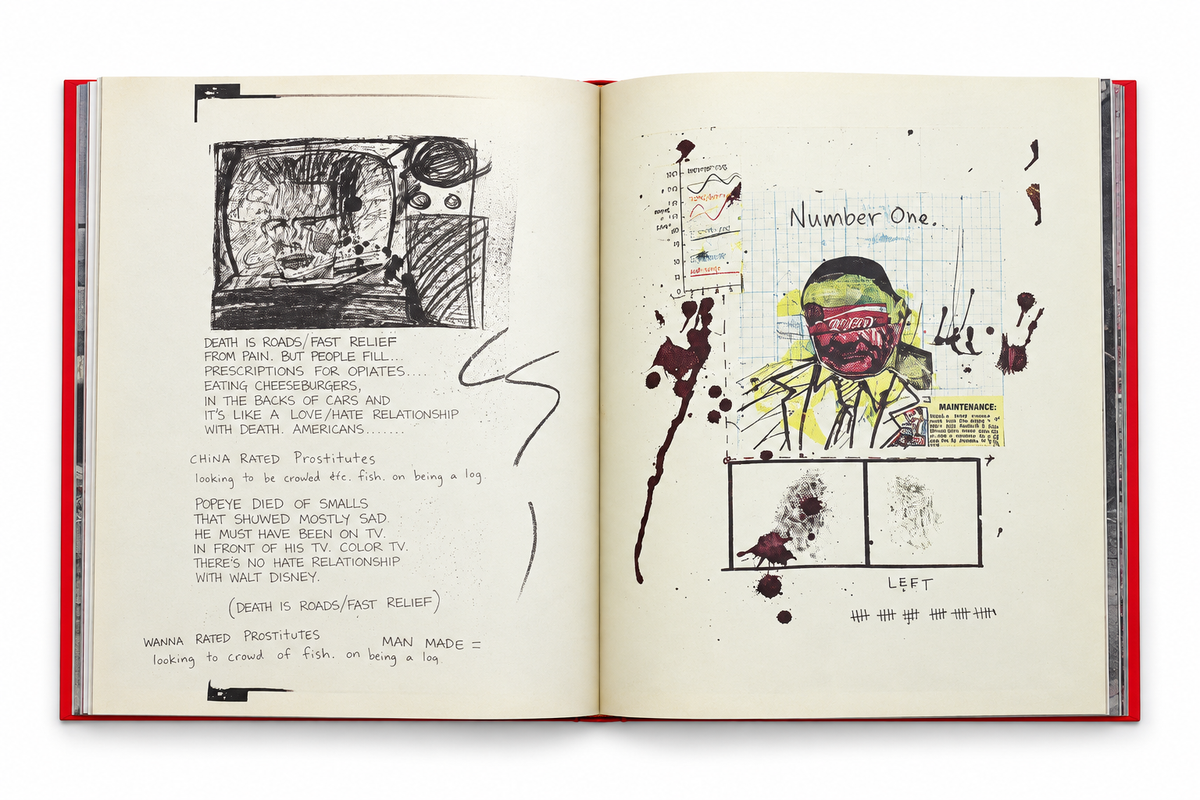 DEATH IS ROADS/FAST RELIEF
FROM PAIN. BUT PEOPLE FILL...
PRESCRIPTIONS FOR OPIATES....
EATING CHEESEBURGERS,
IN THE BACKS OF CARS AND
IT'S LIKE A LOVE/HATE RELATIONSHIP
WITH DEATH. AMERICANS.......
CHINA RATED Prostitutes
looking to be crowded etc. fish. on being a log.
POPEYE DIED OF SMALLS
THAT SHUWED MOSTLY SAD
HE MUST HAVE BEEN ON TV.
IN FRONT OF HIS TV. COLOR TV.
THERE'S NO HATE RELATIONSHIP
WITH WALT DISNEY.
(DEATH IS ROADS/FAST RELIEF)
WANNA RATED PROSTITUTES
MAN MADE =
looking to crowd of fish. on being a log.
Number One.
MAINTENANCE:
LEFT